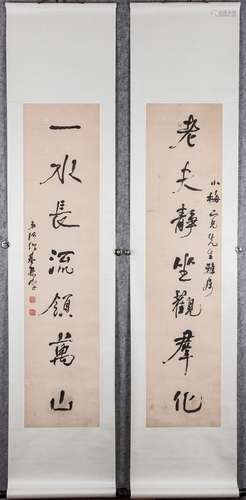 老夫靜坐觀群化
小梅仁兄先生雅屬
一水長流領萬山